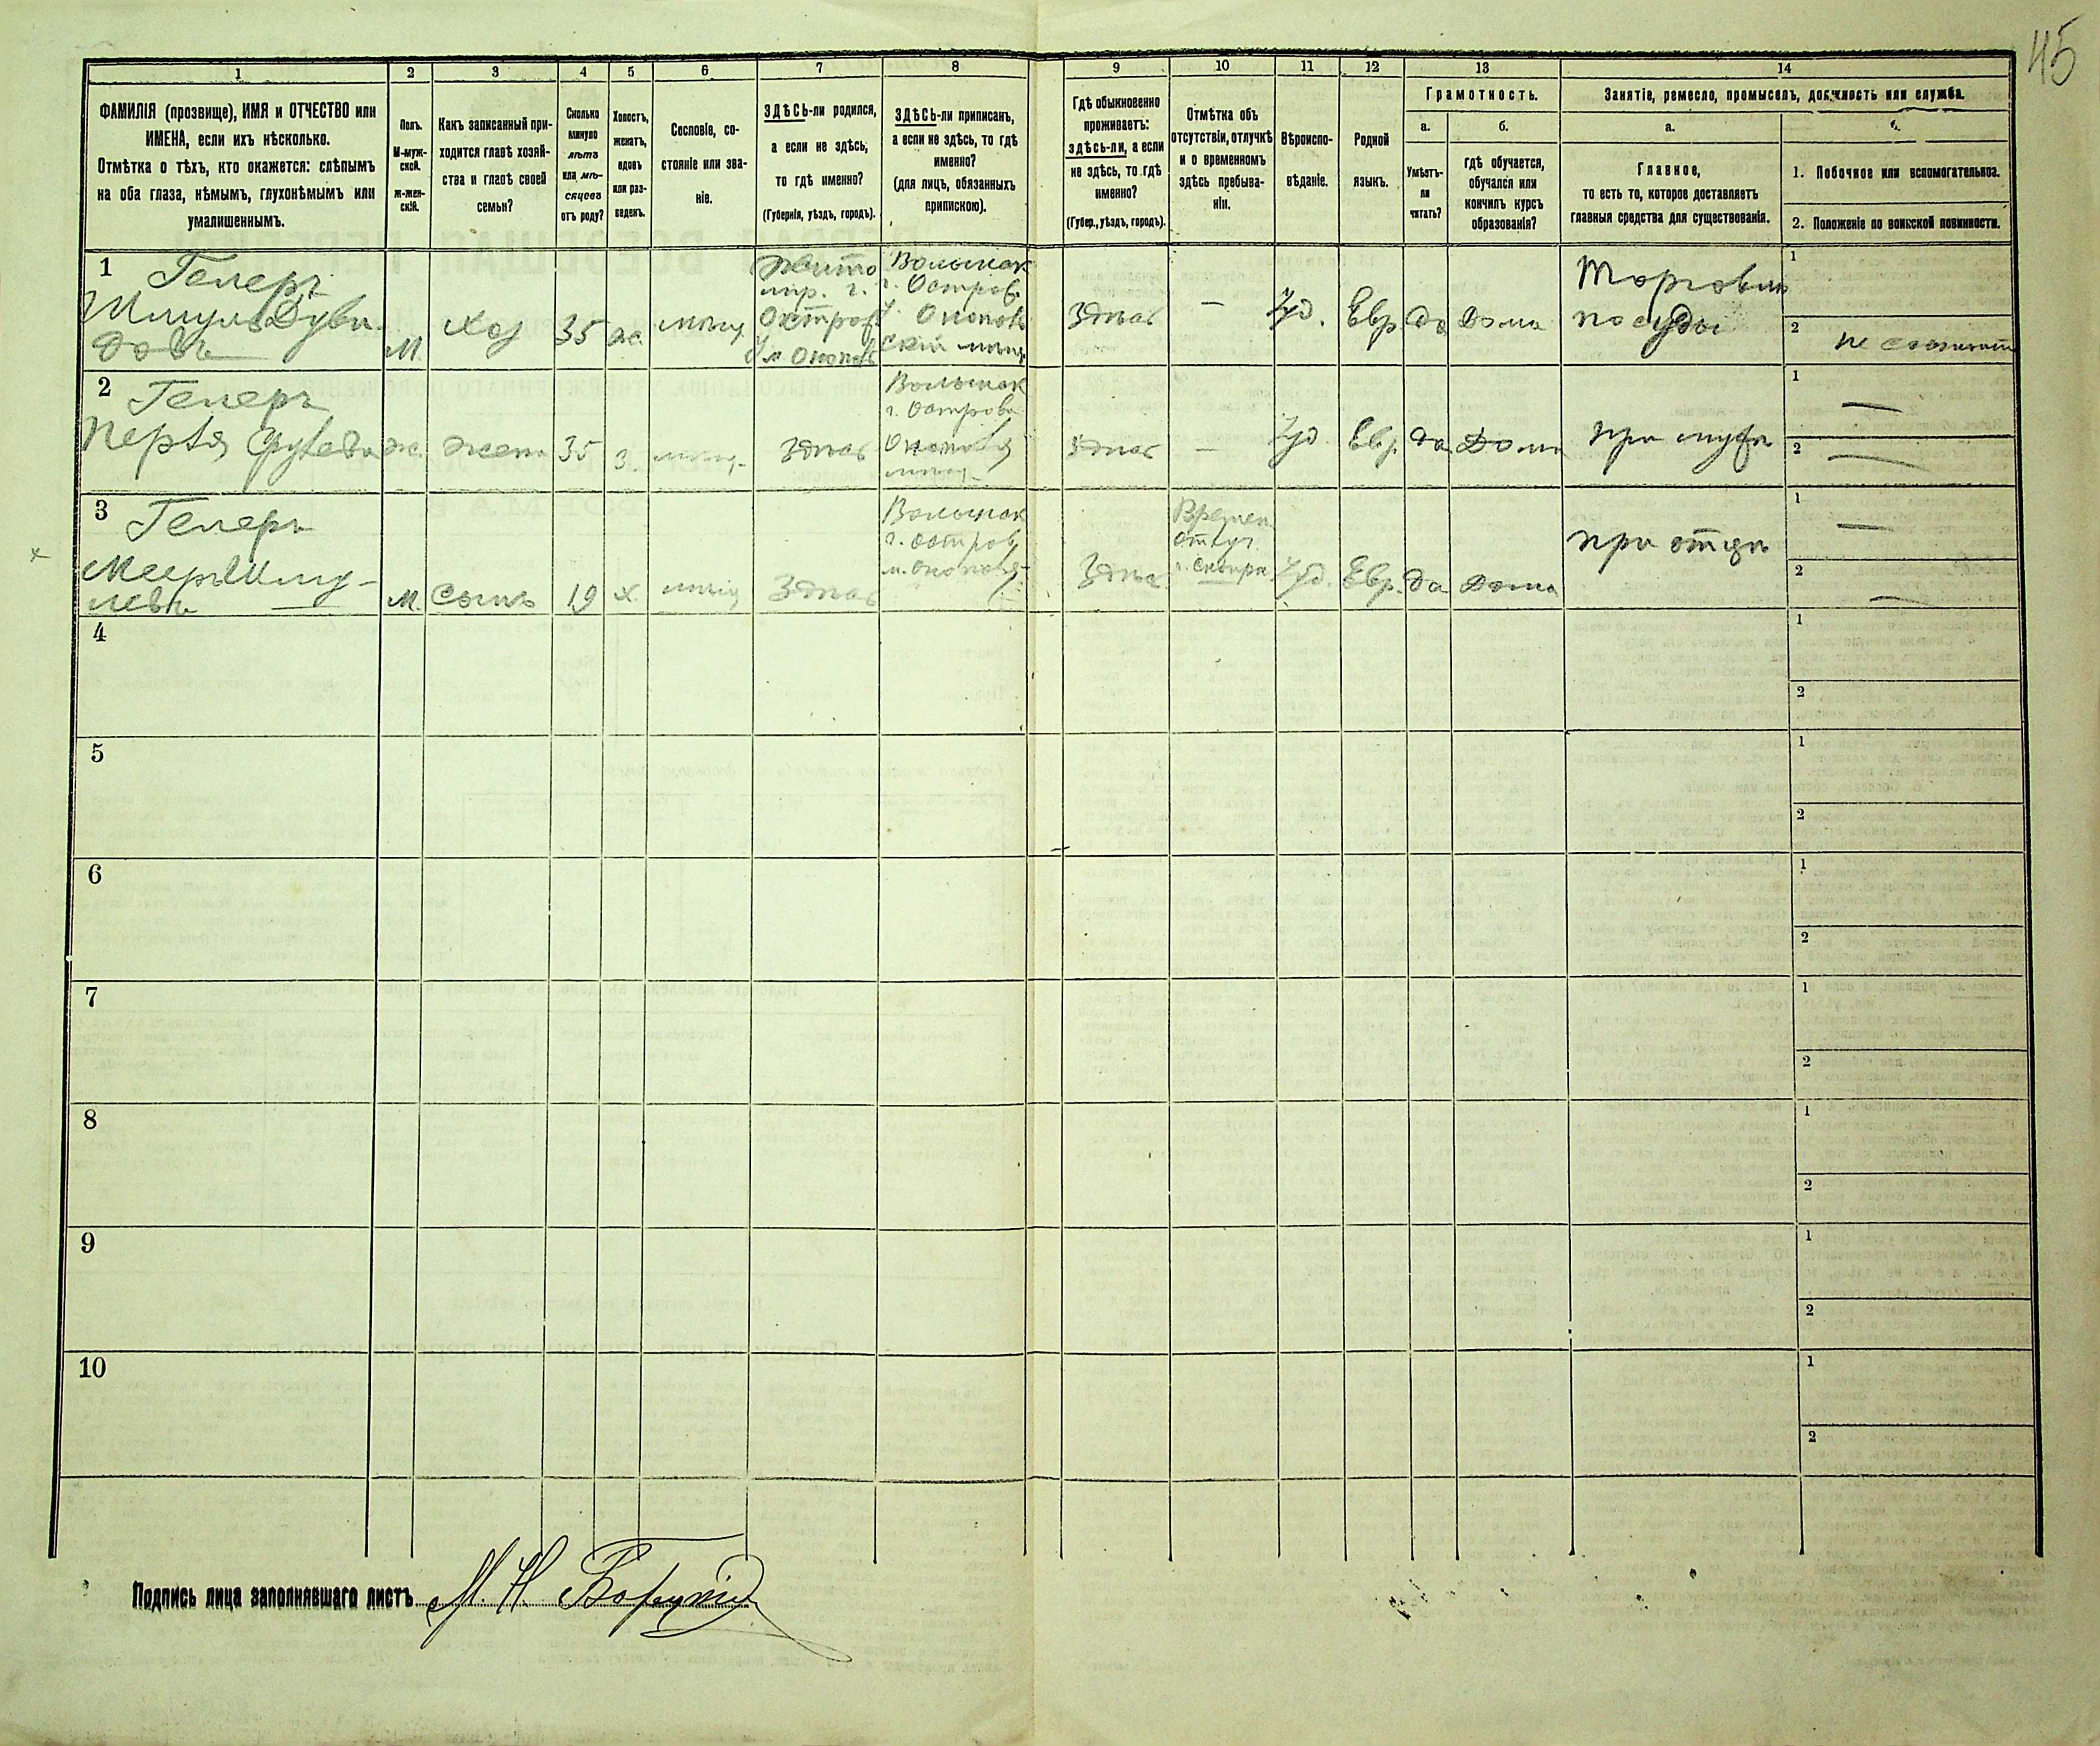 45
1 2 3 4 5 6 7 8 9 10 11 12 13 14
ФАМИЛІЯ (прозвище), ИМЯ и ОТЧЕСТВО или
ИМЕНА, если ихъ нѣсколько.
Отмѣтка о тѣхъ, кто окажется: слѣпымъ
на оба глаза, нѣмымъ, глухонѣмымъ или
умалишеннымъ.
Полъ.
М-муж-
ской.
ж-жен-
скій.
Какъ записанный при-
ходится главѣ хозяй-
ства и главѣ своей
семьи?
Сколько
минуло
лѣтъ
или мѣ-
сяцевъ
отъ роду?
Холостъ,
женатъ,
вдовъ
или раз-
веденъ.
Сословіе, со-
стояніе или зва-
ніе.
ЗДѢСЬ-ли родился,
а если не здѣсь,
то гдѣ именно?
(Губернія, уѣздъ, городъ).
ЗДѢСЬ-ли приписанъ,
а если не здѣсь, то гдѣ
именно?
(для лицъ, обязанныхъ
припискою).
Гдѣ обыкновенно
проживаетъ:
здѣсь-ли, а если
не здѣсь, то гдѣ
именно?
(Губер., уѣздъ, городъ).
Отмѣтка объ
отсутствіи, отлучкѣ
и о временномъ
здѣсь пребыва-
ніи.
Вѣроиспо-
вѣданіе.
Родной
языкъ.
Грамотность.
а.
Умѣетъ-
ли
читать?
б.
Гдѣ обучается,
обучался или
кончилъ курсъ
образованія?
Занятіе, ремесло, промыселъ, должность или служба.
а.
Главное,
то есть то, которое доставляетъ
главныя средства для существованія.
б.
1. Побочное или вспомогательное.
2. Положеніе по воинской повинности.
1 Геперъ
Шмуль Дуви-
довъ
М. хоз 35 ж. мѣщ
Жито
мір. г.
Острог
у м Оноповъ
Волынск
г. Остров
Оноповъ
скій мѣщ
Здѣсь — Іуд. Евр да Дома
Торговля
посуды
1
2 не служит
2 Геперъ
Перля
ж. жена 35 з. мѣщ. здѣсь
Волынск
г. Острово
мѣщ.
здѣсь — Іуд. Евр. да Дома при мужѣ
1 —
2 —
3 Геперъ
Меер Шму-
левъ
М. Сынъ 19 х. мѣщ здѣсь
Волынск
г. Остров
Здѣсь
Времен.
отлуч.
Іуд. Евр. да дома при отцѣ
1 —
2 —
4 1
2
5 1
2
6 1
2
7 1
2
8 1
2
9 1
2
10 1
2
Подпись лица заполнявшаго листъ М. Н.